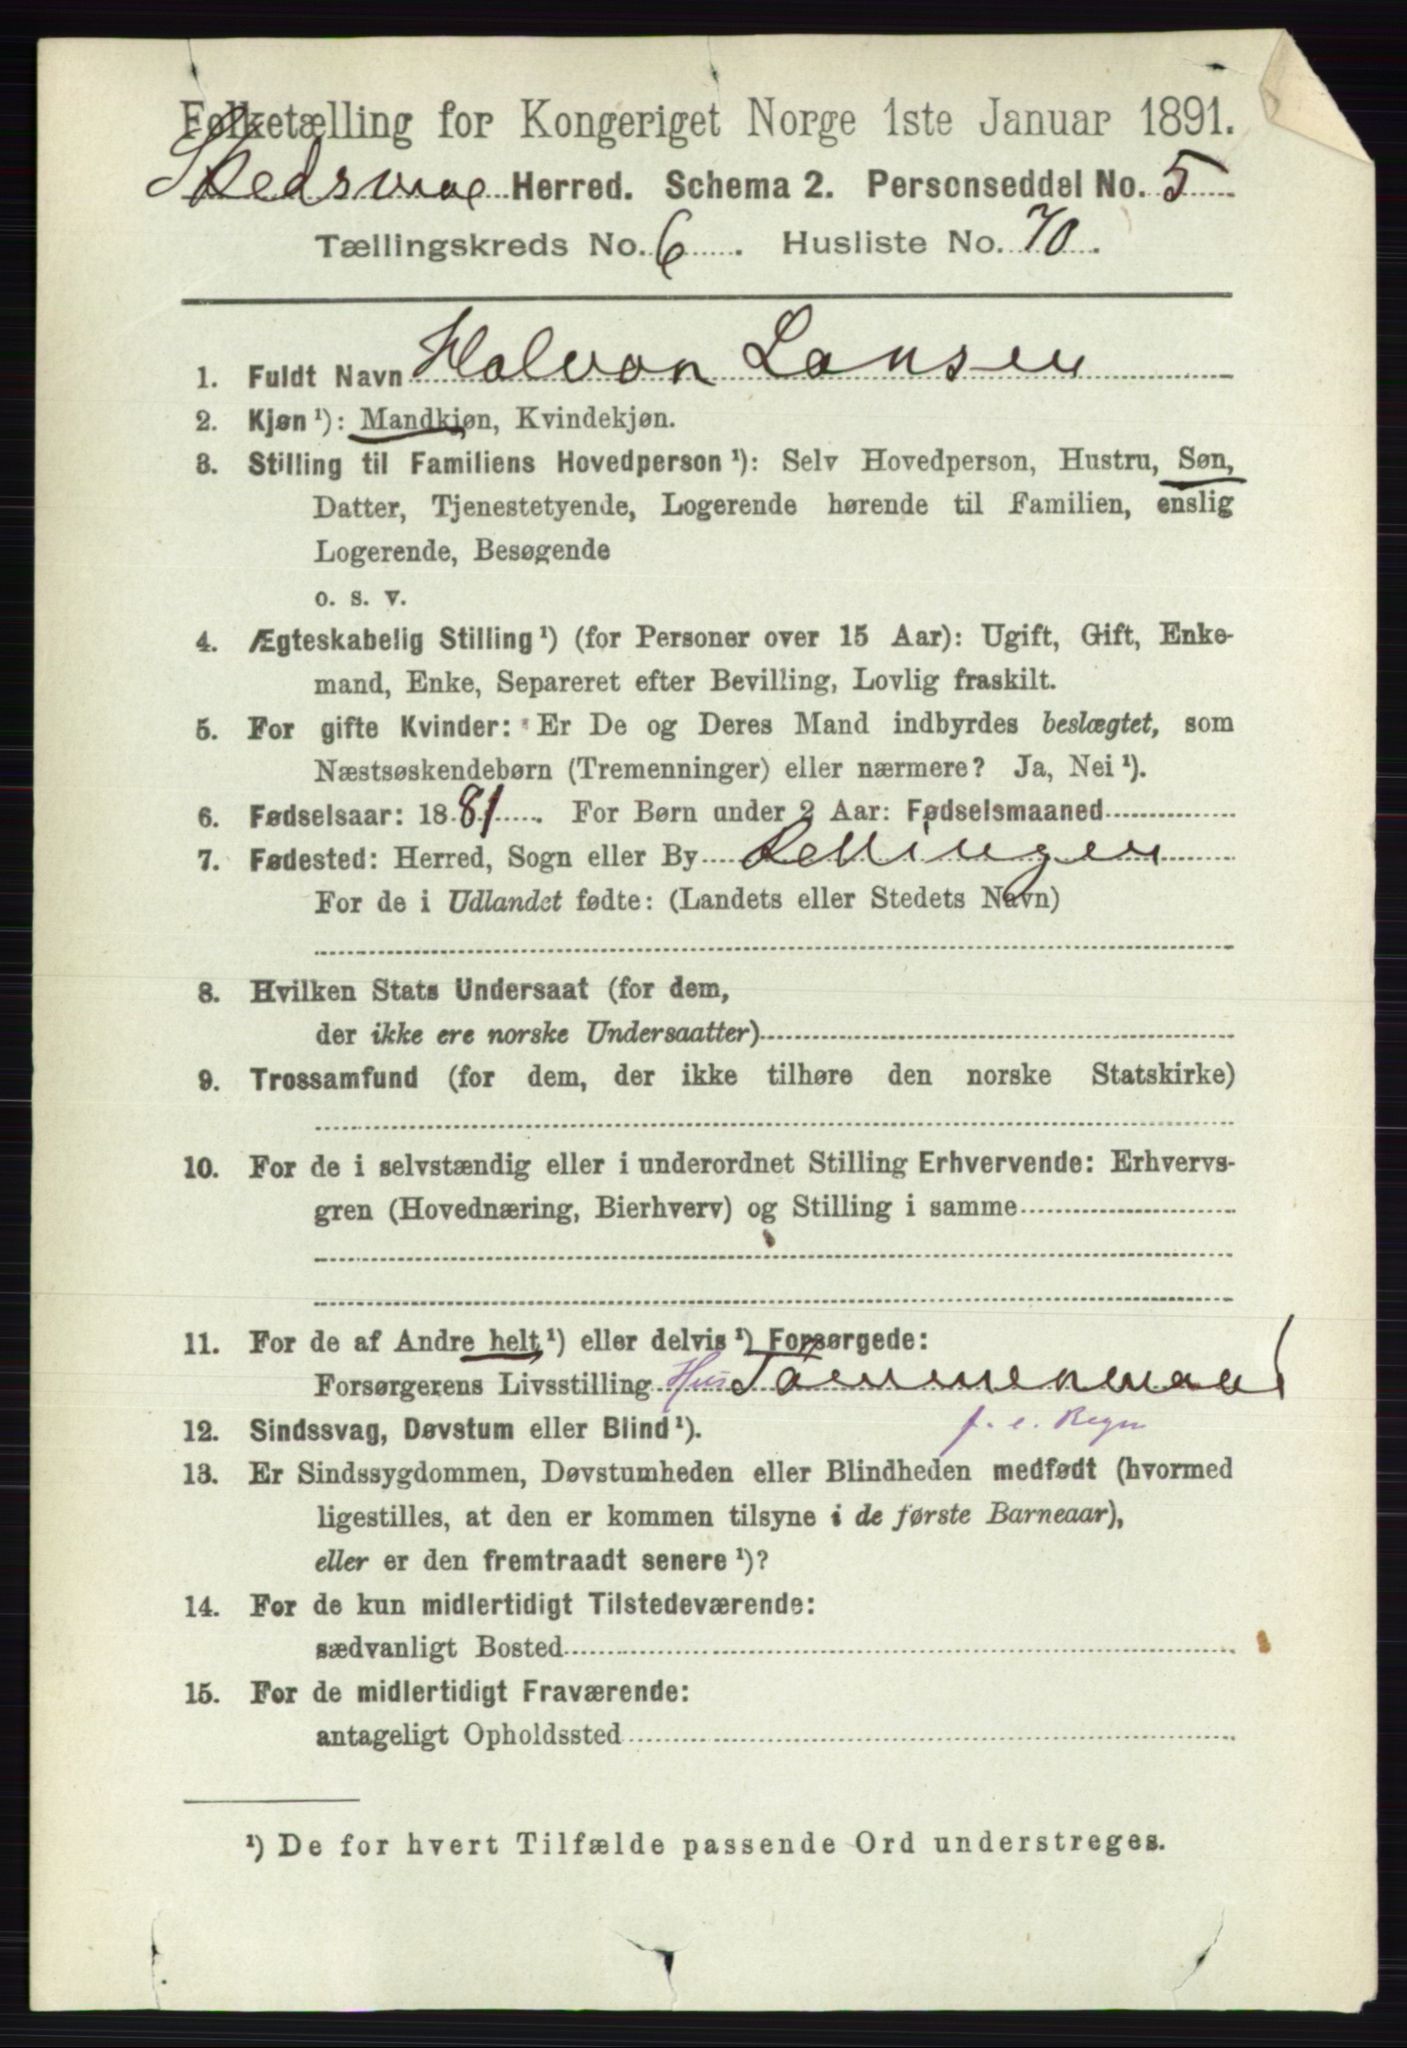 Folketælling for Kongeriget Norge 1ste Januar 1891.
Skedsmoe Herred. Schema 2. Personseddel No. 5
Tællingskreds No. 6. Husliste No. 70.
1. Fuldt Navn Halvor Larsen
2. Kjøn¹): Mandkjøn, Kvindekjøn.
3. Stilling til Familiens Hovedperson¹): Selv Hovedperson, Hustru, Søn,
Datter, Tjenestetyende, Logerende hørende til Familien, enslig
Logerende, Besøgende
o. s. v.
4. Ægteskabelig Stilling¹) (for Personer over 15 Aar): Ugift, Gift, Enke-
mand, Enke, Separeret efter Bevilling, Lovlig fraskilt.
5. For gifte Kvinder: Er De og Deres Mand indbyrdes beslægtet, som
Næstsøskendebørn (Tremenninger) eller nærmere? Ja, Nei¹).
6. Fødselsaar: 1881. For Børn under 2 Aar: Fødselsmaaned
7. Fødested: Herred, Sogn eller By Rellingen
For de i Udlandet fødte: (Landets eller Stedets Navn)
8. Hvilken Stats Undersaat (for dem,
der ikke ere norske Undersaatter)
9. Trossamfund (for dem, der ikke tilhøre den norske Statskirke)
10. For de i selvstændig eller i underordnet Stilling Erhvervende: Erhvervs-
gren (Hovednæring, Bierhverv) og Stilling i samme
11. For de af Andre helt¹) eller delvis¹) Forsørgede:
Forsørgerens Livsstilling Hus Tømmermand
f. e. Regn
12. Sindssvag, Døvstum eller Blind¹).
13. Er Sindssygdommen, Døvstumheden eller Blindheden medfødt (hvormed
ligestilles, at den er kommen tilsyne i de første Barneaar),
eller er den fremtraadt senere¹)?
14. For de kun midlertidigt Tilstedeværende:
sædvanligt Bosted
15. For de midlertidigt Fraværende:
antageligt Opholdssted
¹) De for hvert Tilfælde passende Ord understreges.